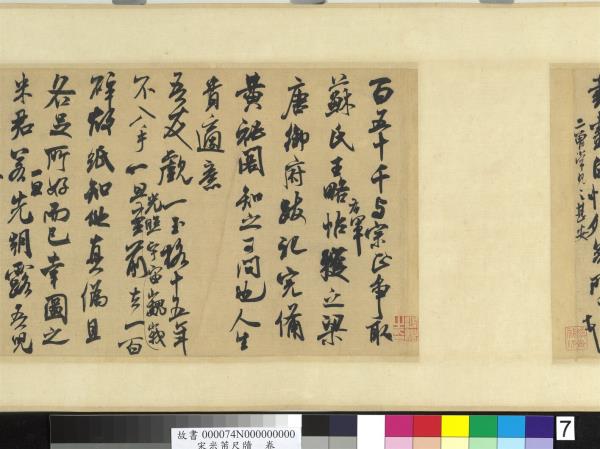 百五十千与宗正争取
蘇氏王略帖 右軍 獲之梁
唐御府跋記完備
黄秘閣知之可問也人生
貴適意
吾友觀一玉格十五年
不入手一旦光照宇宙巍峨
至前去一百
碎故紙知他真僞且
各足所好而已幸圖之
米君若一旦先朝露吾兒
二軍
故書 000074N000000000
宋米芾尺牘 卷
7